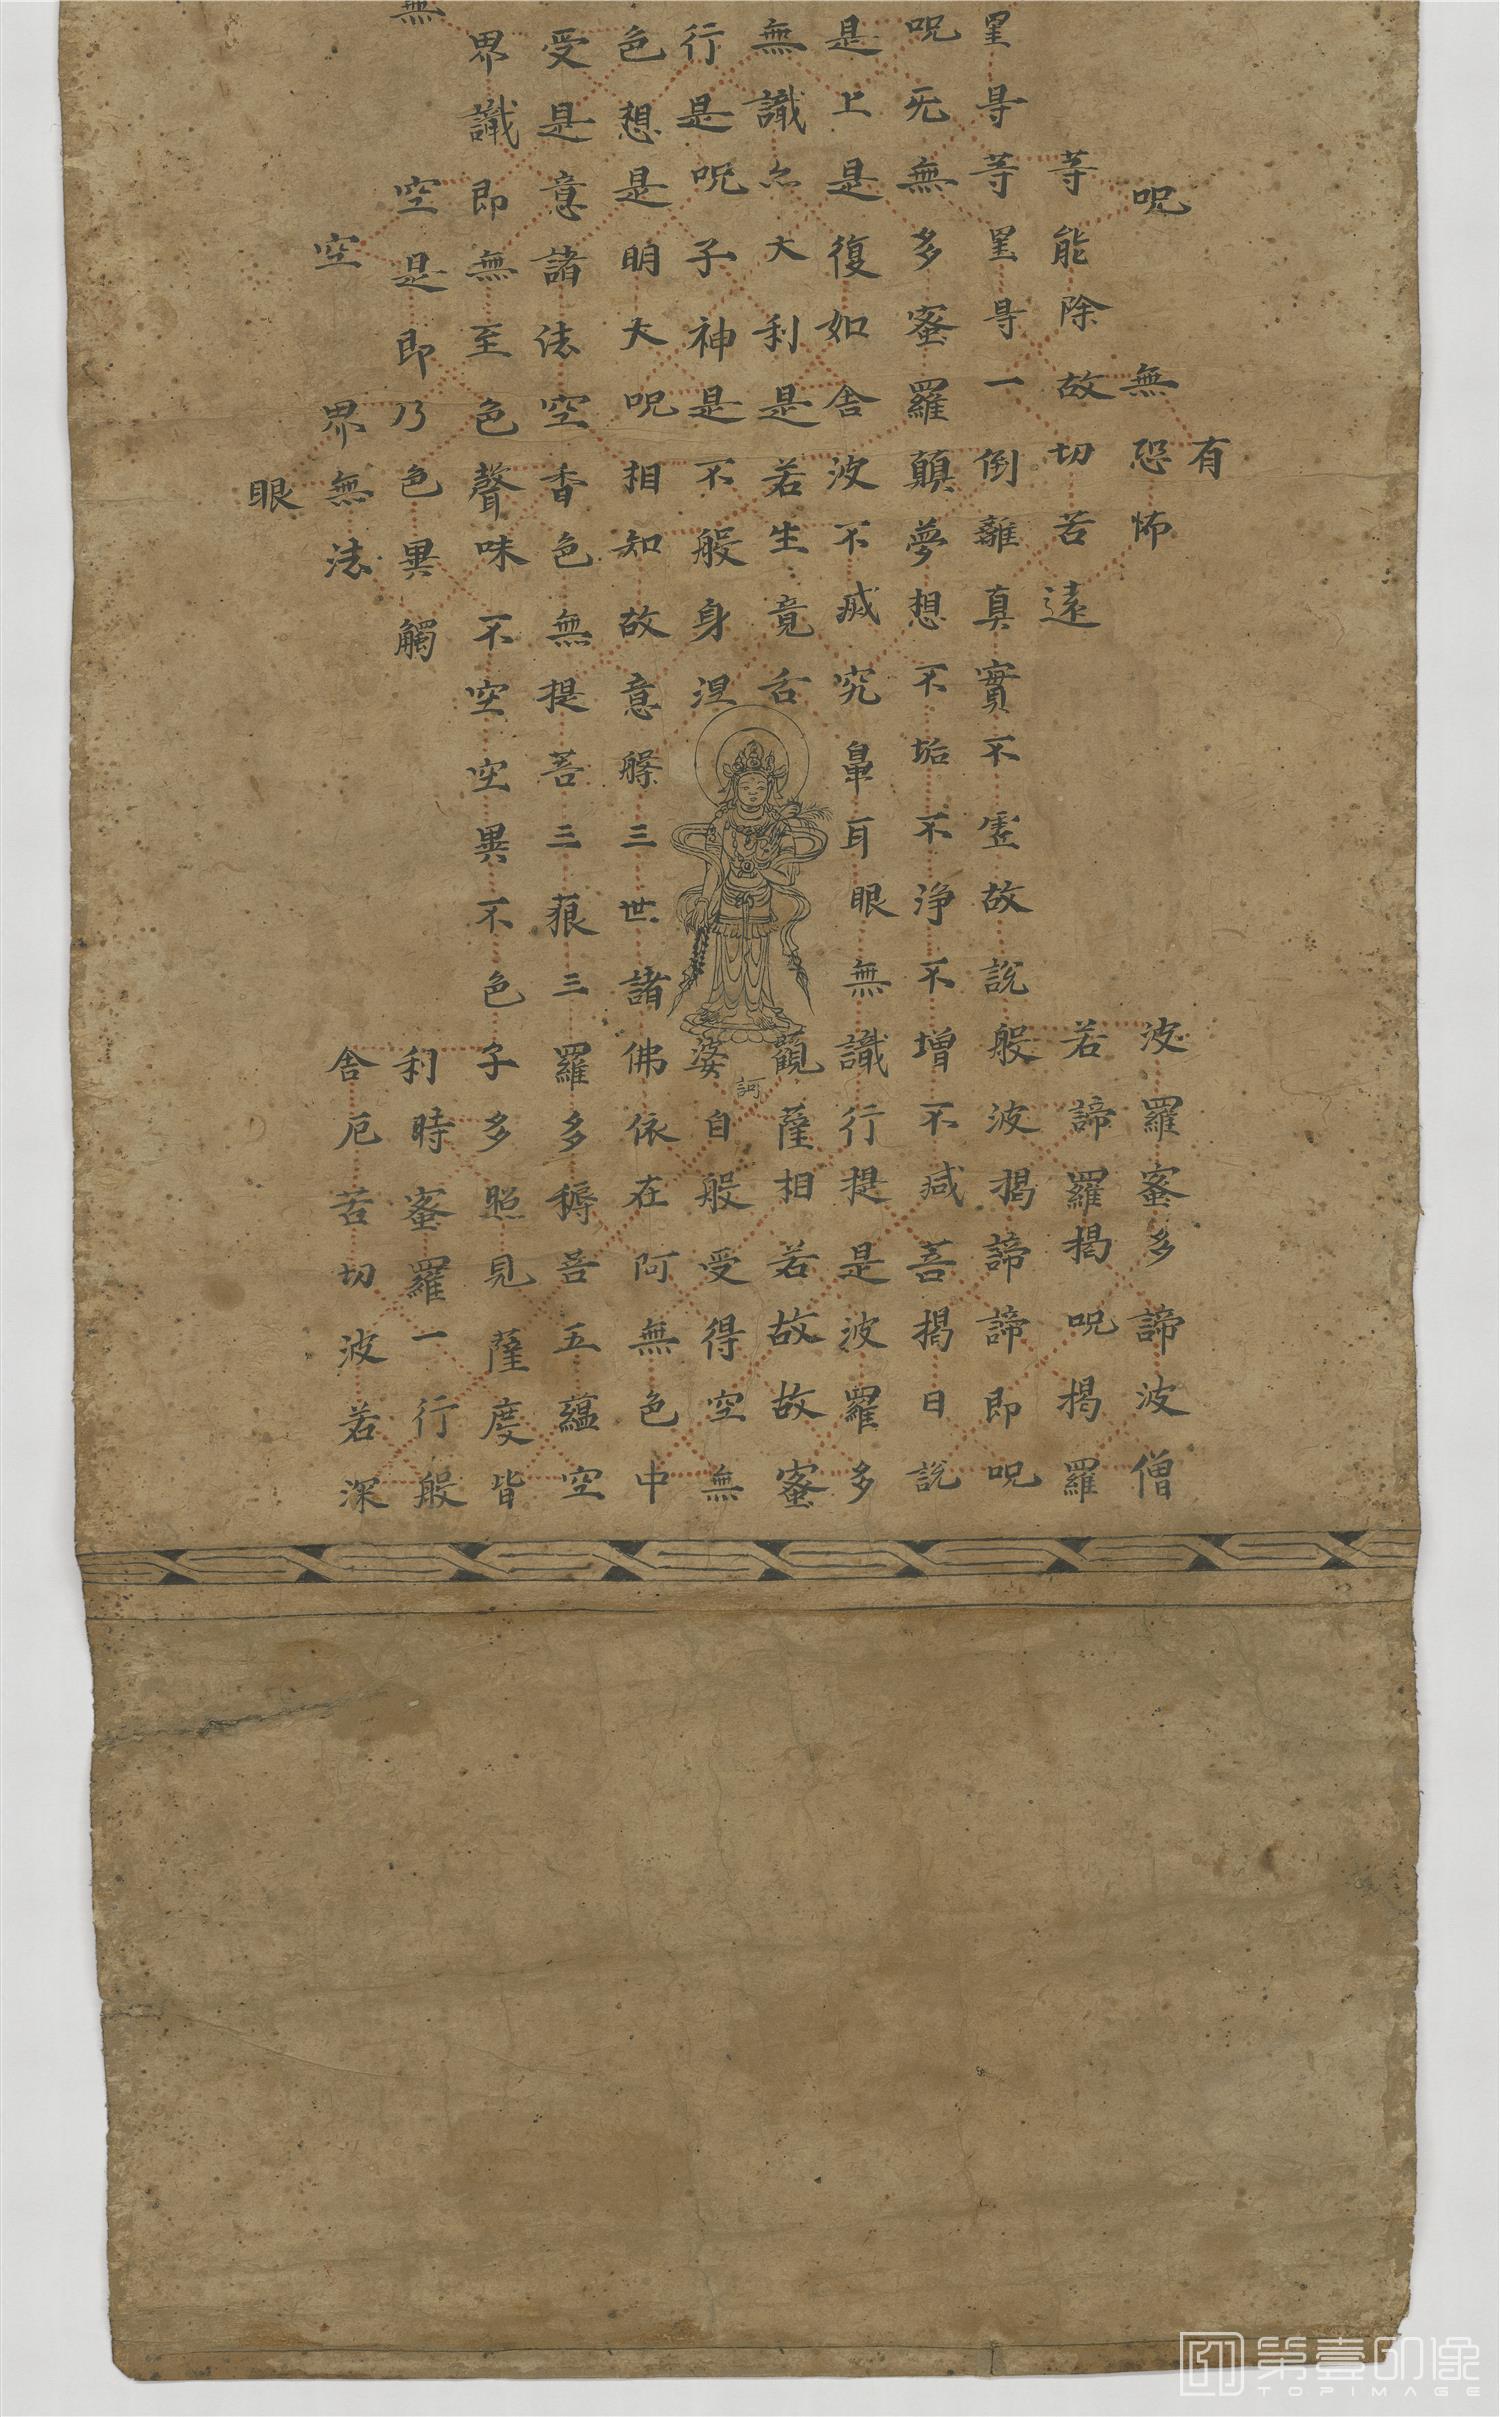 有
呪無恐怖
波羅蜜多諦波僧
等能除故切苦遠
若諦羅揭呪揭羅

等
一倒離真實不虛故說
般波揭諦諦即呪
呪无無多蜜羅顛夢想不垢不淨不增不減菩揭曰說
是上是復如舍波不
究鼻耳眼無識行提是波羅多
無識亦大利是若生竟舌
觀薩相若故故蜜
行是呪子神是不般身涅
婆自般受得空無
訶
色想是明大呪相知故意
三世諸佛依在阿無色中
受是意諸法空香色無提菩三藐三羅多穪吾五蘊空
界識即無至色聲味不空空異不色子多照見薩度皆
無
空是即乃色異觸
利時蜜羅一行般
空
界無法
舍厄苦切波若深
眼
第壹印像
TOPIMAGE